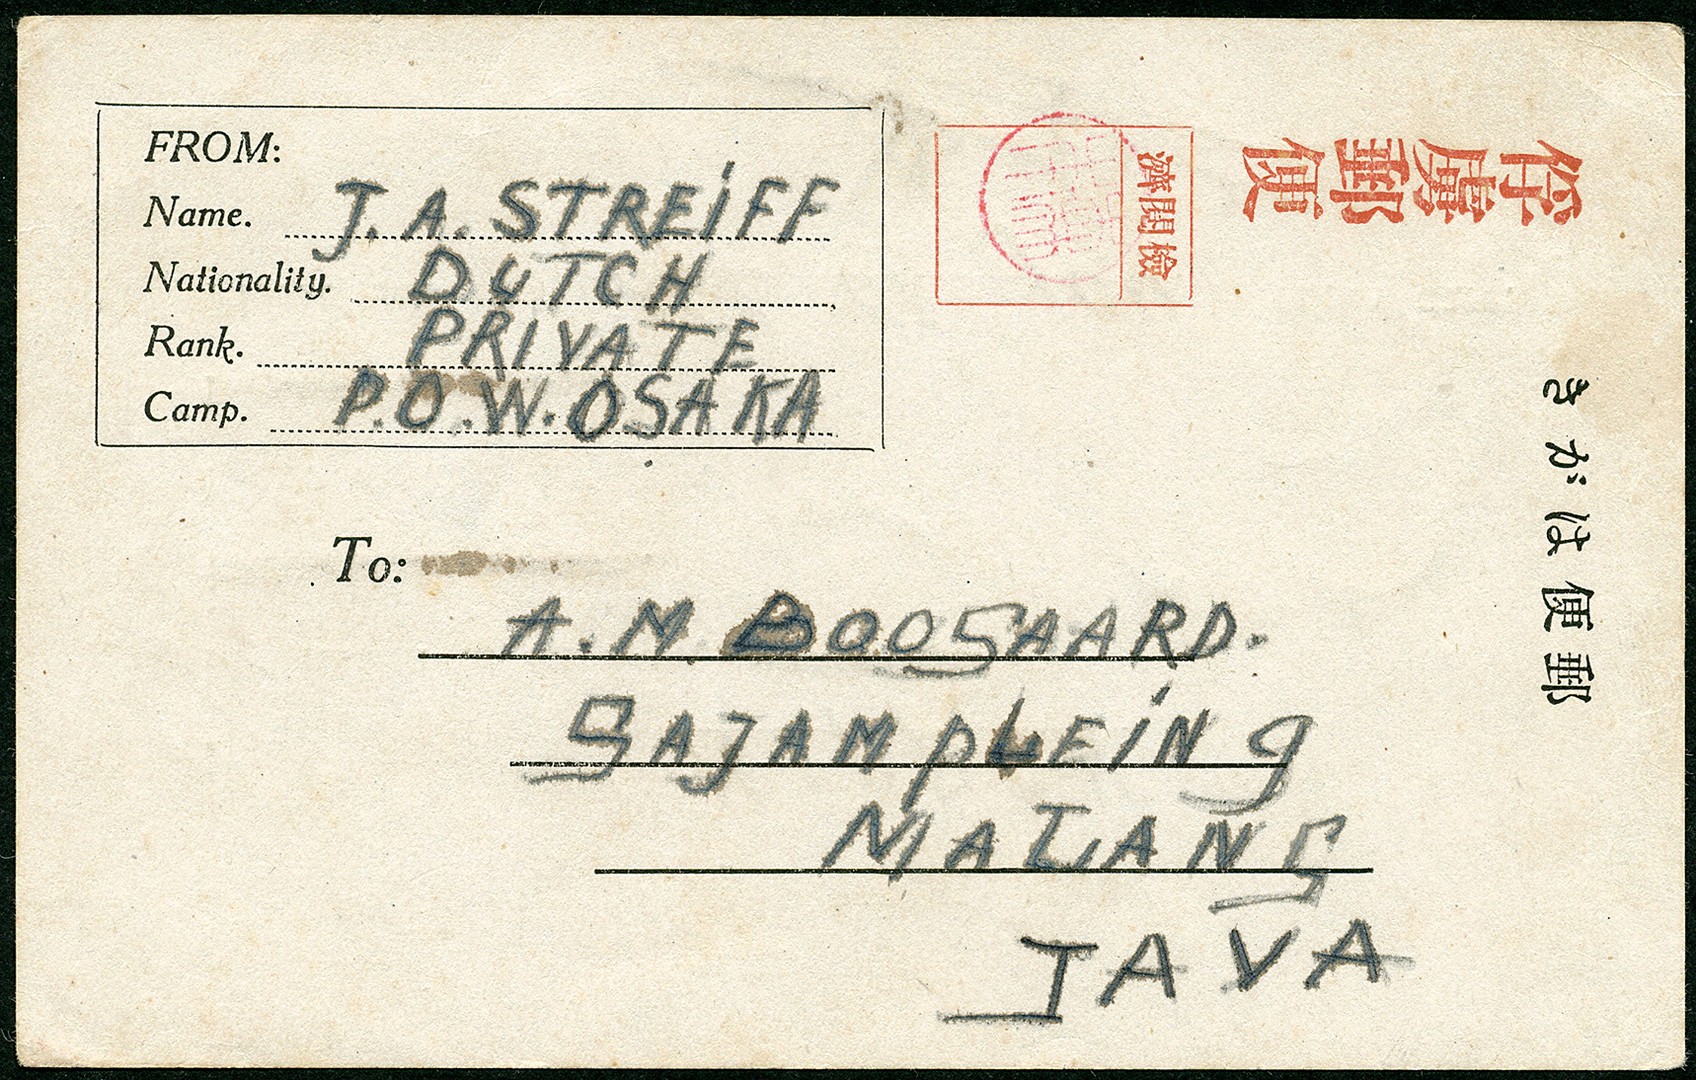 FROM:
Name. J. A. STREIFF
Nationality. DUTCH
Rank. PRIVATE
Camp. P.O.W. OSAKA
檢閲濟
俘虜郵便
郵便はがき
To:
A. M. BOOGAARD.
GAJAMPLEIN 9
MALANG
JAVA